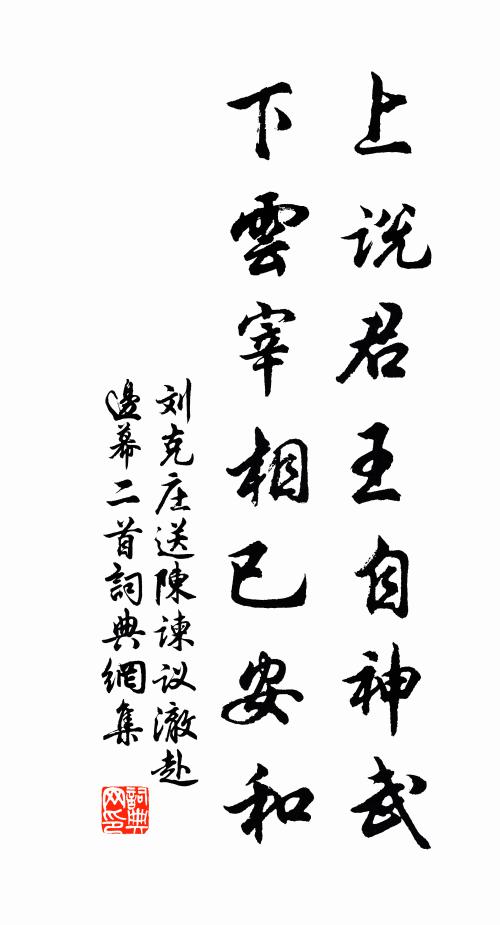 上说君王自神武
下雲宰相已安和
刘克庄送陳諫议澈赴
邊幕二首詞典網集
詞典网印